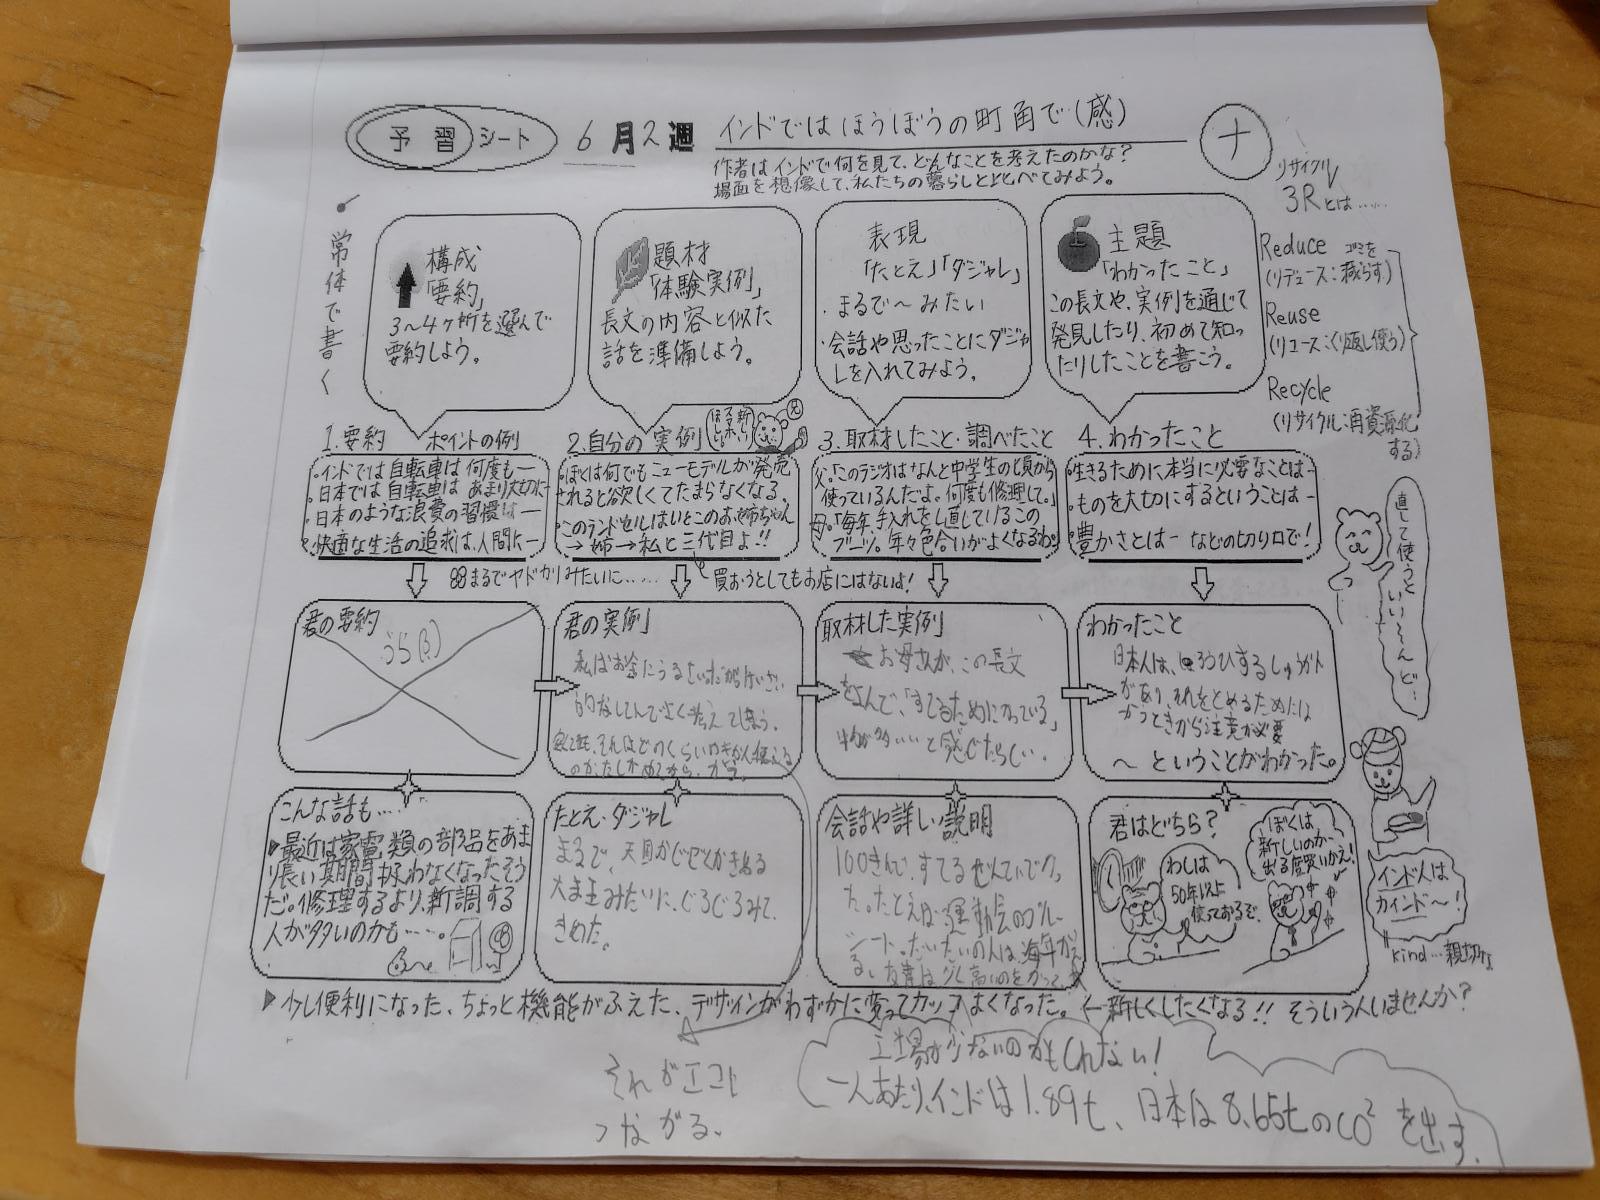 予習シート 6月2週 インドではほうぼうの町角で(感)
ナ
作者はインドで何を見て、どんなことを考えたのかな?
場面を想像して、私たちの暮らしとくらべてみよう。
常体で書く
構成
「要約」
3〜4ヶ所を選んで
要約しよう。
題材
「体験実例」
長文の内容と似た
話を準備しよう。
表現
「たとえ」「ダジャレ」
・まるで〜みたい
・会話や思ったことにダジャ
レを入れてみよう。
主題
「わかったこと」
この長文や、実例を通じて
発見したり、初めて知っ
たりしたことを書こう。
リサイクル
3Rとは……
Reduce ゴミを
(リデュース:減らす)
Reuse
(リユース:くり返し使う)
Recycle
(リサイクル:再資源化
する)
1.要約 ポイントの例
・インドでは自転車は何度も―
・日本では自転車はあまり大切に―
・日本のような浪費の習慣は―
・快適な生活の追求は、人間に―
2.自分の実例
・ぼくは何でもニューモデルが発売
されると欲しくてたまらなくなる。
・このランドセルはいとこのお姉ちゃん
→姉→私と三代目よ!!
3.取材したこと・調べたこと
父.「このラジオはなんと中学生の頃から
使っているんだよ。何度も修理して。」
母.「毎年、手入れをし直しているこの
ブーツ。年々色合いがよくなるわ。
4.わかったこと
・生きるために本当に必要なことは―
・ものを大切にするということは―
・豊かさとは― などの切り口で!
まるでヤドカリみたいに……
買おうとしてもお店にはないよ!
直して使うと
いい〜んど…
君の要約
うら
君の実例
私はお金にうるさい
考えてしまう。
取材した実例
お母さんが、この長文
をよんで、「すてるためにかっている」
物が多い…と感じたらしい.
わかったこと
日本人は、ろうひするしゅうかん
があり、それをとめるためには
かうときから注意が必要
〜ということがわかった。
こんな話も……
▶最近は家電類の部品をあま
り長い期間、扱わなくなったそう
だ。修理するより、新調する
人が多いのかも……。
たとえ・ダジャレ
まるで、
大王みたいに、じろじろみて、
きめた。
会話や詳しい説明
100きんで、すてるぜんていでかっ
た。たとえば運動会のブルー
シート。だいたいの人は、毎年かえ
る。
君はどちら?
わしは
50年以上
使っておるぞ。
ぼくは
新しいのが
出る度買いかえ!
インド人は
カインド〜!
kind…親切な
▶少し便利になった、ちょっと機能がふえた、デザインがわずかに変ってカッコよくなった。←新しくしたくなる!! そういう人いませんか?
それがエコに
つながる、
工場が少ないのかもしれない!
一人あたり、インドは1.89t、日本は8.65tのCO²を出す.